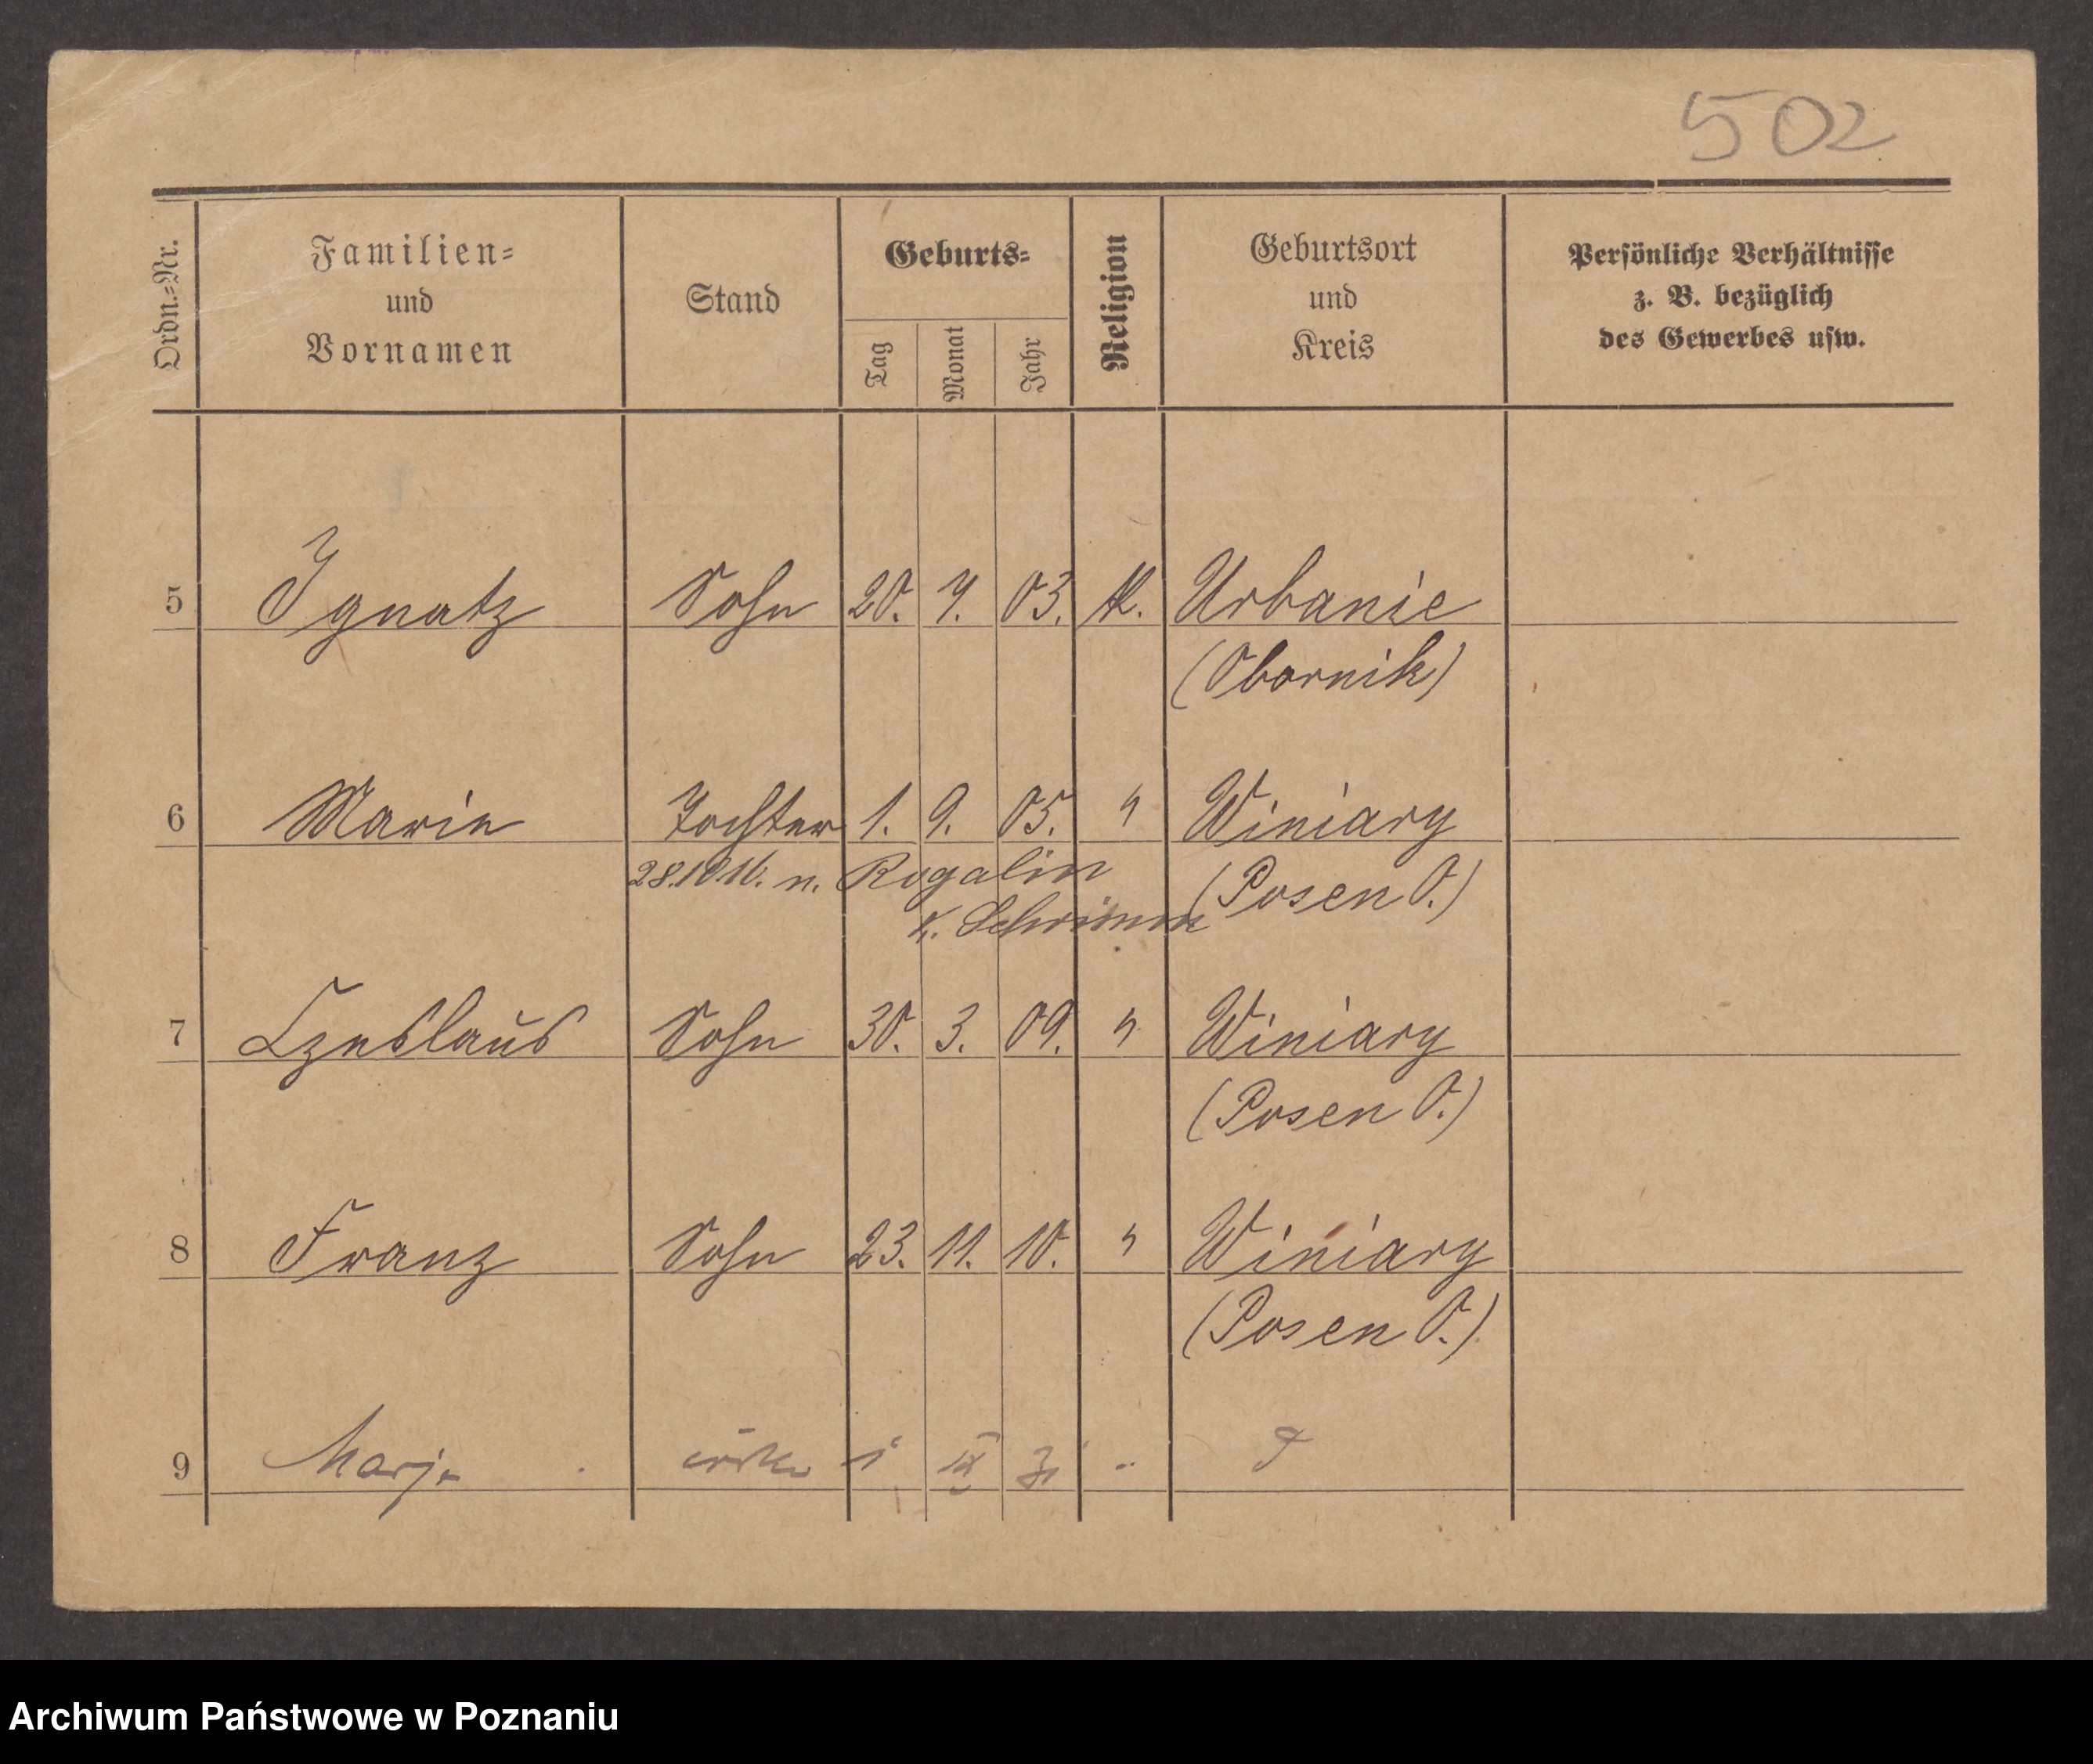 502
Ordn.=Nr.
Familien=
und
Vornamen
Stand
Geburts=
Tag
Monat
Jahr
Religion
Geburtsort
und
Kreis
Persönliche Verhältnisse
z. B. bezüglich
des Gewerbes usw.
5 Ignatz Sohn 20. 7. 03. K. Urbanie
(Obornik)
6 Marie Tochter 1. 9. 05. " Winiary
28.10.16. n. Rogalin (Posen O.)
K. Schrimm
7 Czeslaus Sohn 30. 3. 09. " Winiary
(Posen O.)
8 Franz Sohn 23. 11. 10. " Winiary
(Posen O.)
9 Marja 1 IX "
Archiwum Państwowe w Poznaniu